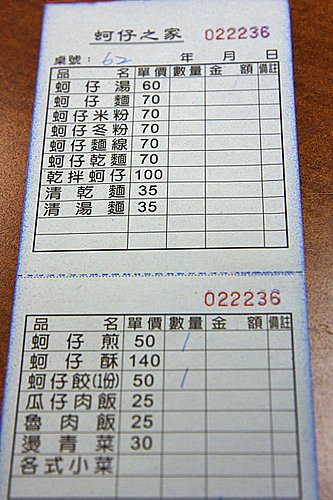 蚵仔之家 022236
桌號：62 年 月 日
品名 單價 數量 金額 備註
蚵仔湯 60
蚵仔麵 70
蚵仔米粉 70
蚵仔冬粉 70
蚵仔麵線 70
蚵仔乾麵 70
乾拌蚵仔 100
清乾麵 35
清湯麵 35
022236
品名 單價 數量 金額 備註
蚵仔煎 50 1
蚵仔酥 140
蚵仔餃(1份) 50 1
瓜仔肉飯 25
魯肉飯 25
燙青菜 30
各式小菜